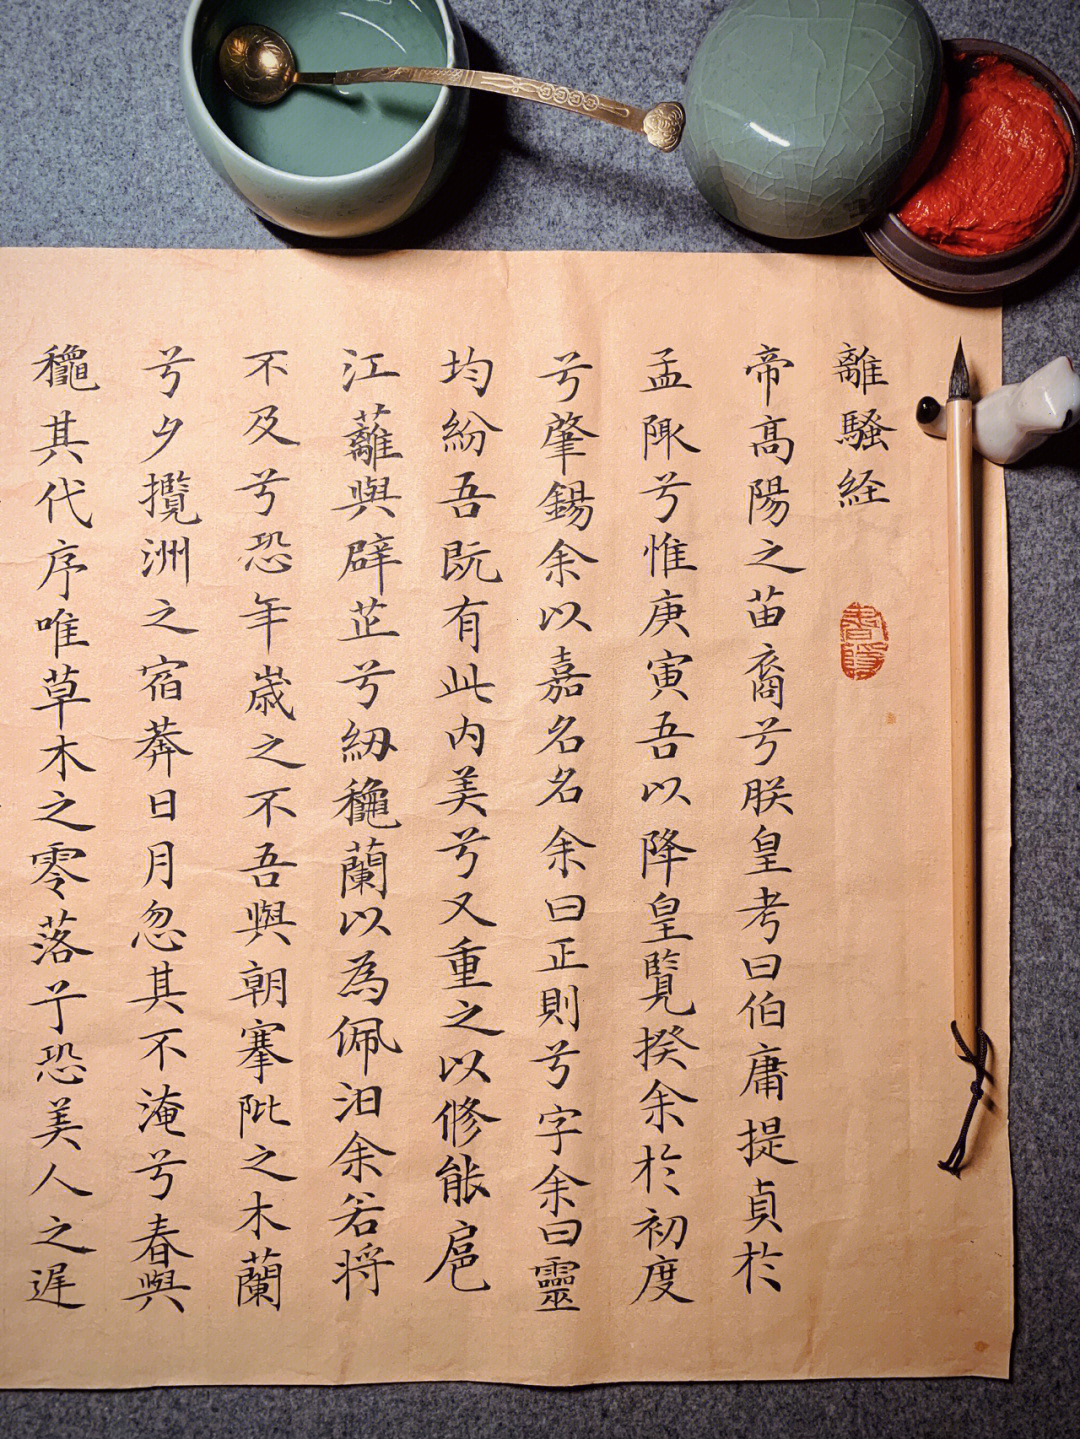 離騷経
帝高陽之苗裔兮朕皇考曰伯庸提貞於
孟陬兮惟庚寅吾以降皇覽揆余於初度
兮肇錫余以嘉名名余曰正則兮字余曰靈
均紛吾既有此内美兮又重之以修能扈
江蘺與辟芷兮紉龝蘭以為佩汨余若将
不及兮恐年歳之不吾與朝搴阰之木蘭
兮夕攬洲之宿莽日月忽其不淹兮春與
龝其代序唯草木之零落兮恐美人之遲